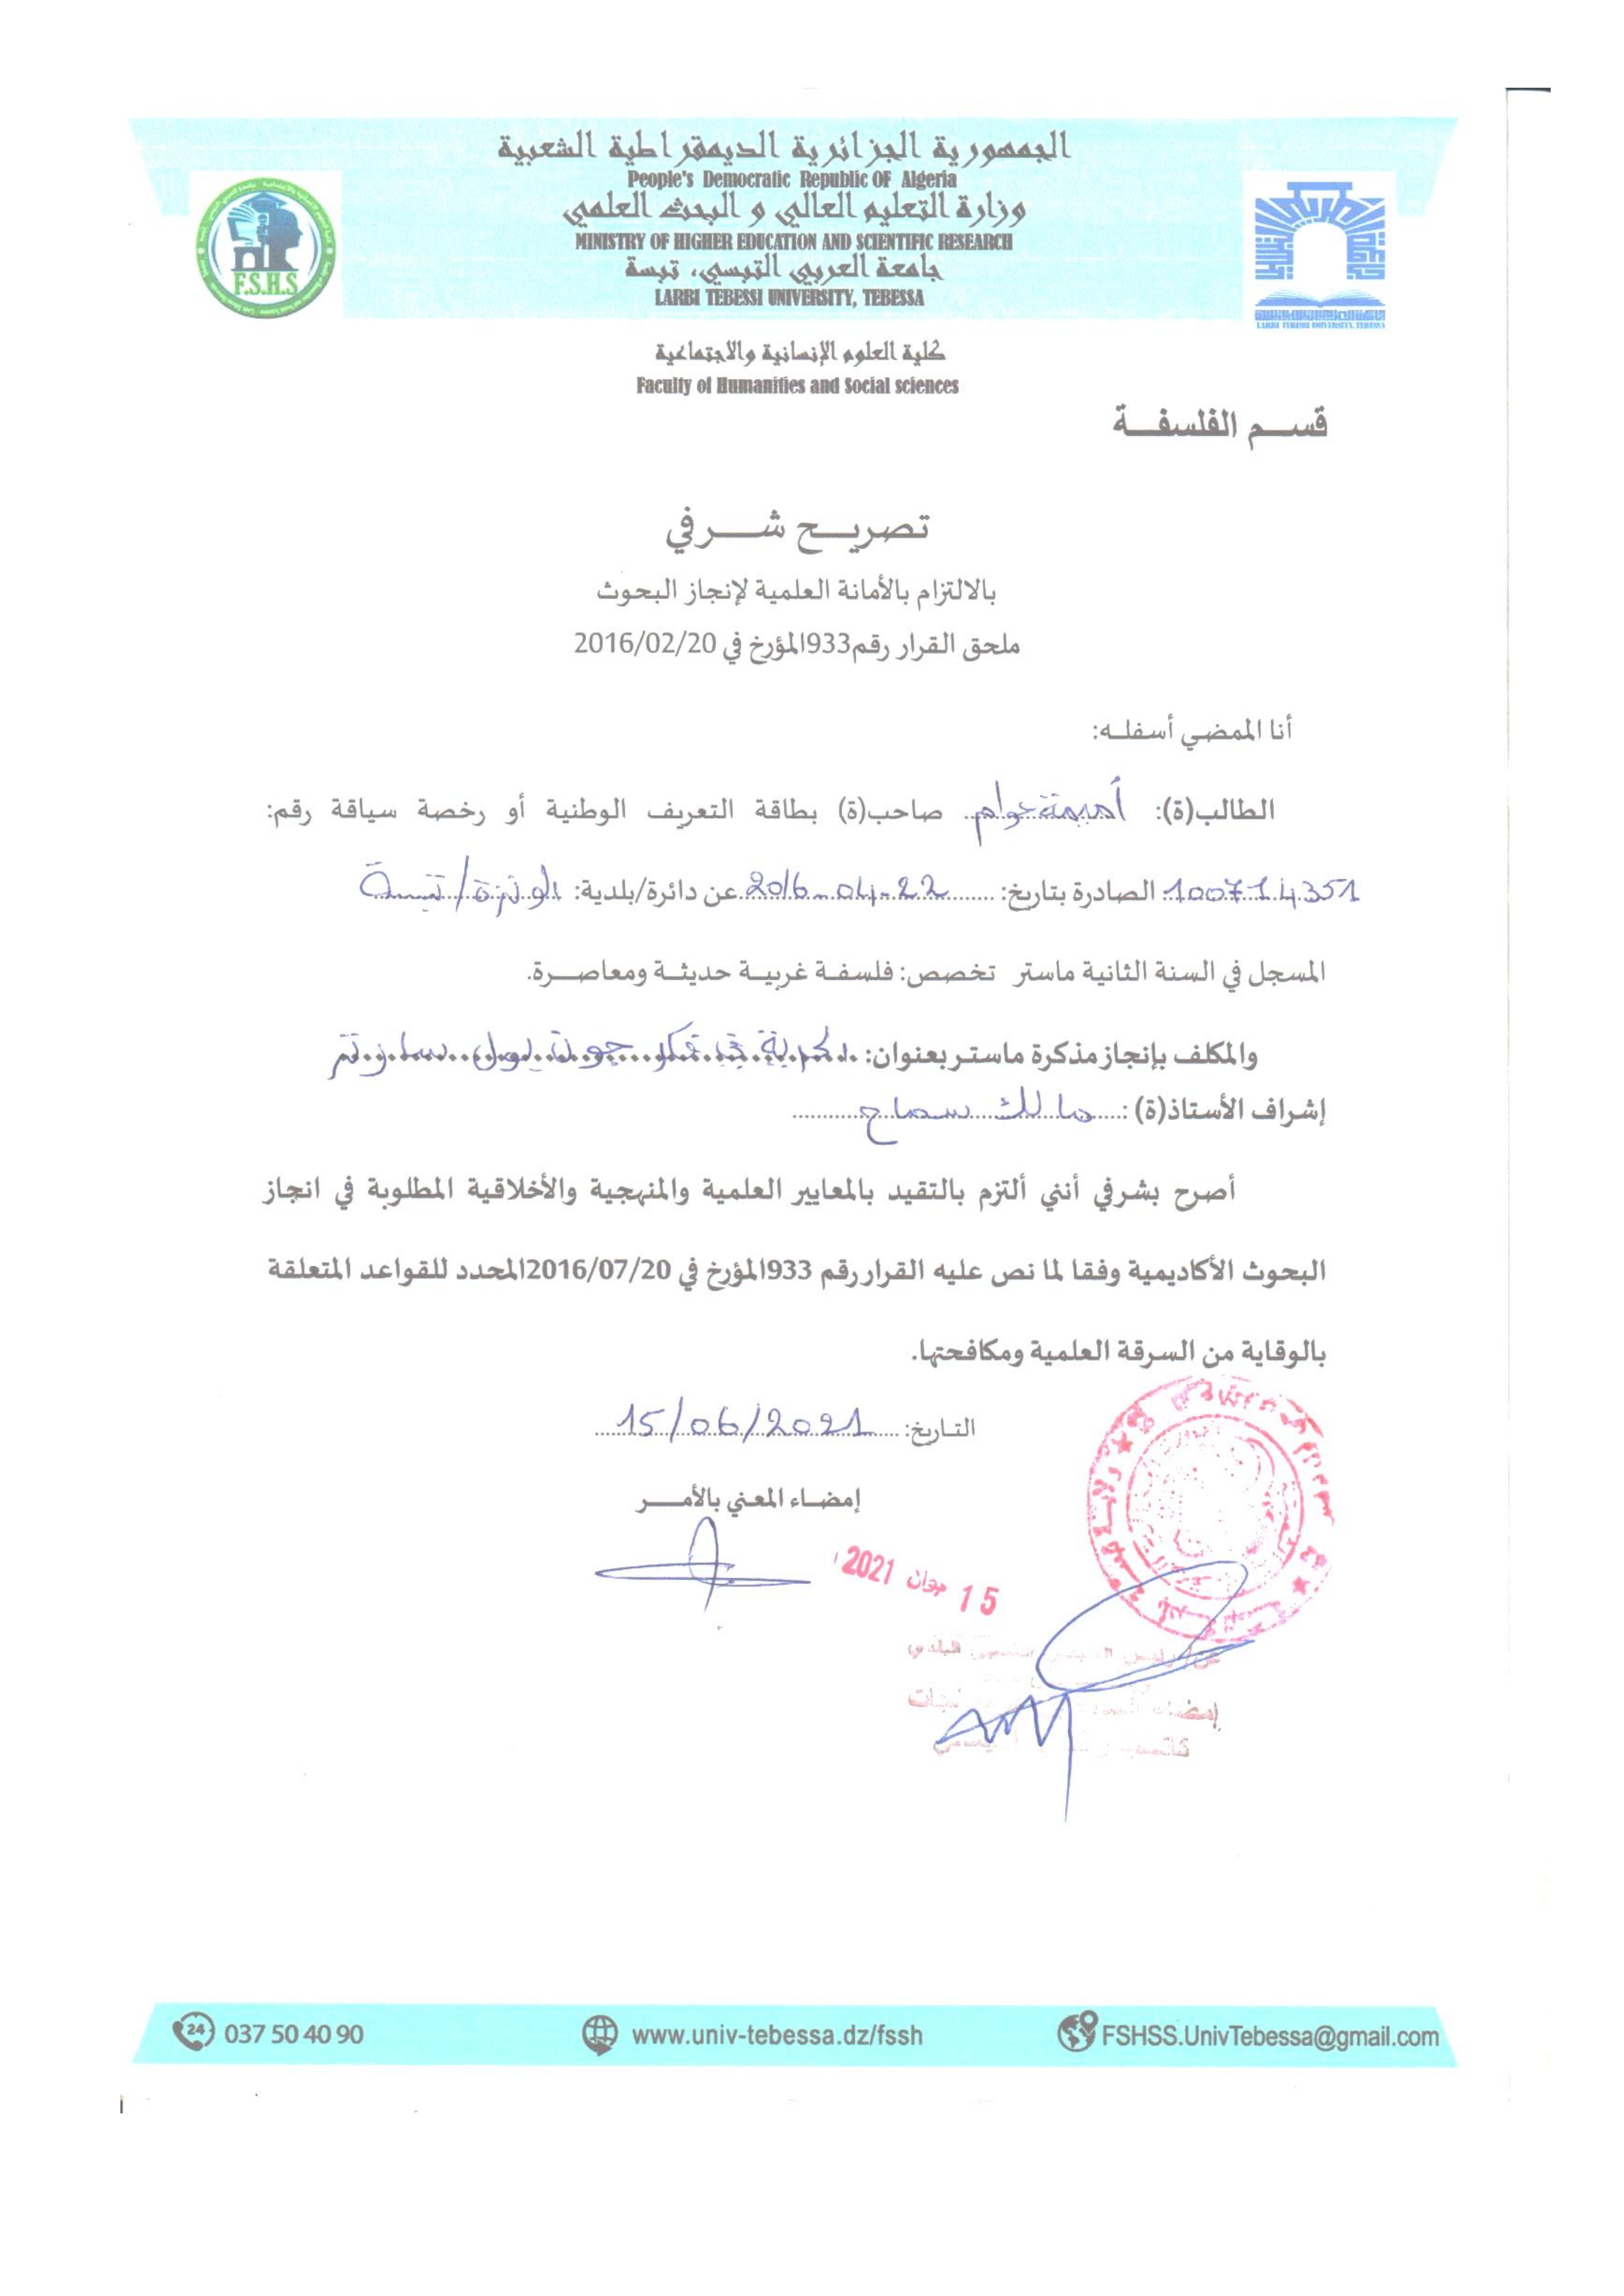 الجمهورية الجزائرية الديمقراطية الشعبية
People's Democratic Republic OF Algeria
وزارة التعليم العالي و البحث العلمي
MINISTRY OF HIGHER EDUCATION AND SCIENTIFIC RESEARCH
جامعة العربي التبسي، تبسة
LARBI TEBESSI UNIVERSITY, TEBESSA
F.S.H.S
LARBI TEBESSI UNIVERSITY, TEBESSA
كلية العلوم الإنسانية والاجتماعية
Faculty of Humanities and Social sciences
قسم الفلسفة
تصريح شرفي
بالالتزام بالأمانة العلمية لإنجاز البحوث
ملحق القرار رقم933المؤرخ في 2016/02/20
أنا الممضي أسفله:
الطالب(ة): أميمة عوام صاحب(ة) بطاقة التعريف الوطنية أو رخصة سياقة رقم:
100714351 الصادرة بتاريخ: 2016-04-22 عن دائرة/بلدية: الونزة/تبسة
المسجل في السنة الثانية ماستر تخصص: فلسفة غربية حديثة ومعاصرة.
والمكلف بإنجاز مذكرة ماستر بعنوان: الحرية في فكر جون بول سارتر
إشراف الأستاذ(ة): مالك سماح
أصرح بشرفي أنني ألتزم بالتقيد بالمعايير العلمية والمنهجية والأخلاقية المطلوبة في انجاز
البحوث الأكاديمية وفقا لما نص عليه القرار رقم 933المؤرخ في 2016/07/20المحدد للقواعد المتعلقة
بالوقاية من السرقة العلمية ومكافحتها.
التاريخ: 15/06/2021
إمضاء المعني بالأمر
15 جوان 2021
037 50 40 90
www.univ-tebessa.dz/fssh
FSHSS.UnivTebessa@gmail.com